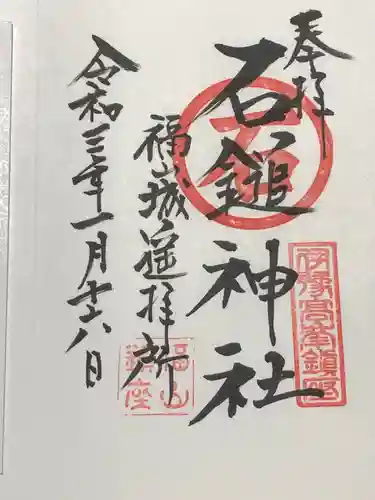 奉拝
石鎚神社
福山城遥拝所
令和三年一月十六日
伊豫高峯鎮座
福山鎮座